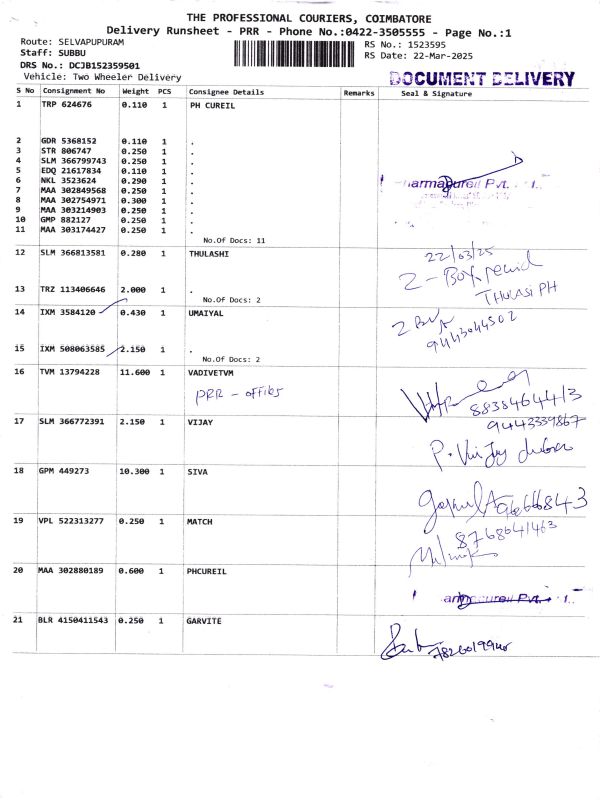 THE PROFESSIONAL COURIERS, COIMBATORE
Delivery Runsheet - PRR - Phone No.:0422-3505555 - Page No.:1
Route: SELVAPUPURAM
Staff: SUBBU
DRS No.: DCJB152359501
Vehicle: Two Wheeler Delivery
RS No.: 1523595
RS Date: 22-Mar-2025
DOCUMENT DELIVERY
S No Consignment No Weight PCS Consignee Details Remarks Seal & Signature
1 TRP 624676 0.110 1 PH CUREIL
2 GDR 5368152 0.110 1 .
3 STR 806747 0.250 1 .
4 SLM 366799743 0.250 1 .
5 EDQ 21617834 0.110 1 .
6 NKL 3523624 0.290 1 .
7 MAA 302849568 0.250 1 .
8 MAA 302754971 0.300 1 .
9 MAA 303214903 0.250 1 .
10 GMP 882127 0.250 1 .
11 MAA 303174427 0.250 1 .
No.Of Docs: 11
12 SLM 366813581 0.280 1 THULASHI
22/03/25
2 - Box
THULASI PH
13 TRZ 113406646 2.000 1 .
No.Of Docs: 2
14 IXM 3584120 0.430 1 UMAIYAL
9443044502
15 IXM 508063585 2.150 1 .
No.Of Docs: 2
16 TVM 13794228 11.600 1 VADIVETVM
PRR -
9443339867
17 SLM 366772391 2.150 1 VIJAY
P. Vijay
18 GPM 449273 10.300 1 SIVA
19 VPL 522313277 0.250 1 MATCH
20 MAA 302880189 0.600 1 PHCUREIL
21 BLR 4150411543 0.250 1 GARVITE